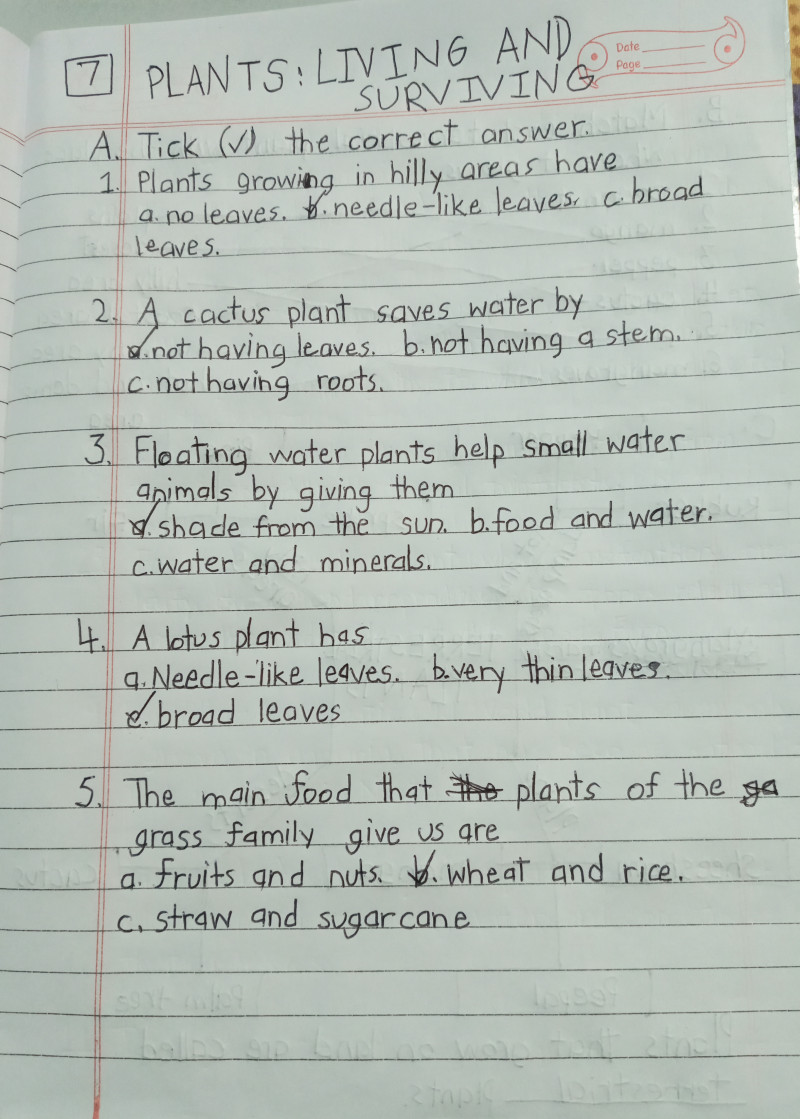 7 PLANTS: LIVING AND
SURVIVING
Date
Page
A. Tick (✓) the correct answer.
1. Plants growing in hilly areas have
a. no leaves. b. needle-like leaves. c. broad
leaves.
2. A cactus plant saves water by
a. not having leaves. b. not having a stem.
c. not having roots.
3. Floating water plants help small water
animals by giving them
a. shade from the sun. b. food and water.
c. water and minerals.
4. A lotus plant has
a. Needle-like leaves. b. very thin leaves.
c. broad leaves
5. The main food that the plants of the ga
grass family give us are
a. fruits and nuts. b. wheat and rice.
c. straw and sugarcane